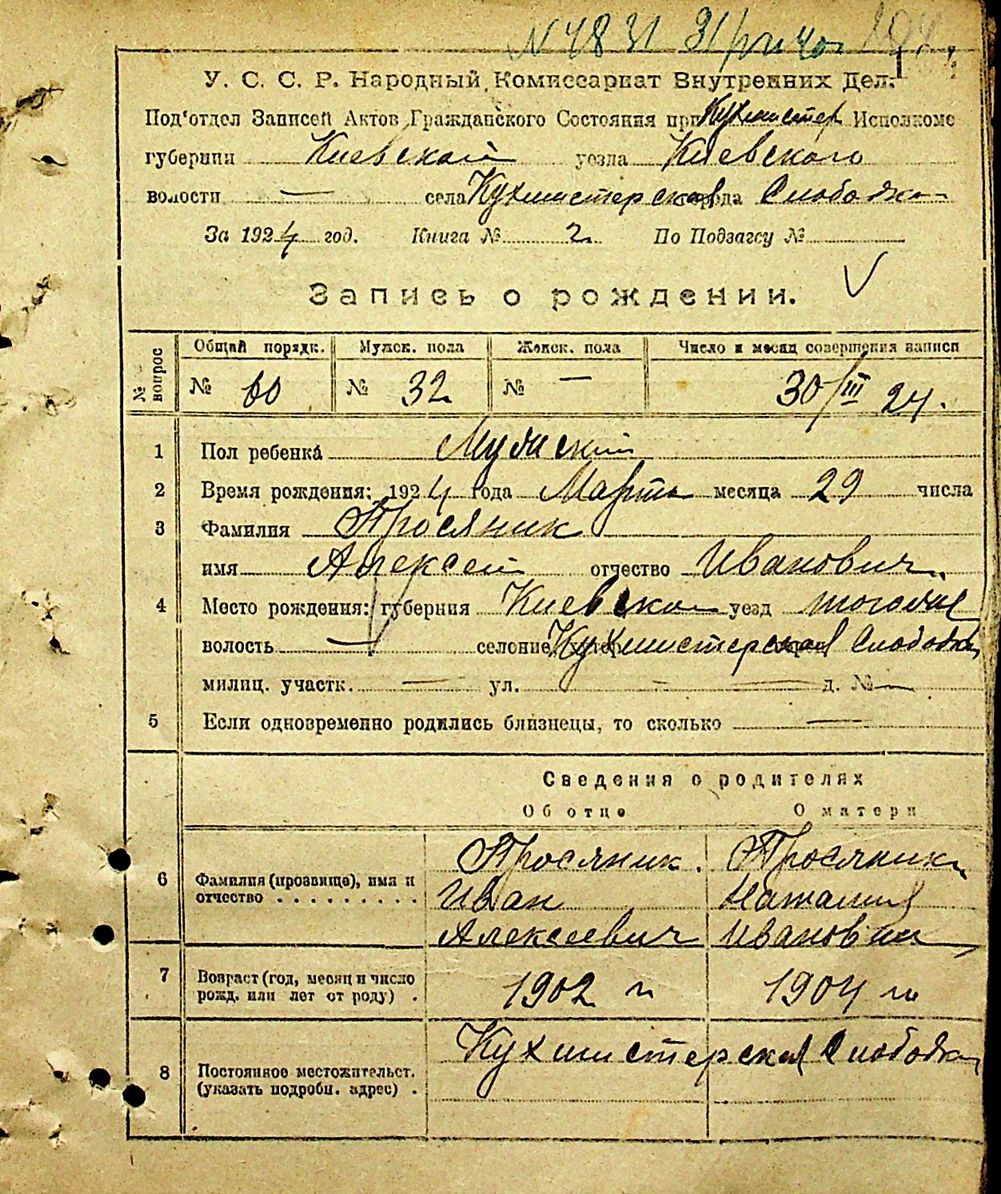 N 4831 31/
У. С. С. Р. Народный Комиссариат Внутренних Дел.
Под'отдел Записей Актов Гражданского Состояния при Кухмистер Исполкоме
губернии Киевской уезда Киевского
волости — села Кухмистерская города Слободка
За 1924 год. Книга № 2 По Подзагсу №
Запись о рождении.
№ вопрос Общий порядк. Мужск. пола Женск. пола Число и месяц совершения записи
№ 60 № 32 № — 30/III 24.
1 Пол ребенка Мужской
2 Время рождения: 1924 года Марта месяца 29 числа
3 Фамилия Просяник
имя Алексей отчество Иванович
4 Место рождения: губерния Киевская уезд тогоже
волость — селение Кухмистерская Слободка
милиц. участк. — ул. — — д. № —
5 Если одновременно родились близнецы, то сколько —
Сведения о родителях
Об отце О матери
6 Фамилия (прозвище), имя и отчество Просяник Просяник
Иван Наталия
Алексеевич Ивановна
7 Возраст (год, месяц и число рожд. или лет от роду) 1902 г 1904 г
8 Постоянное местожительст. (указать подробн. адрес) Кухмистерская Слободка